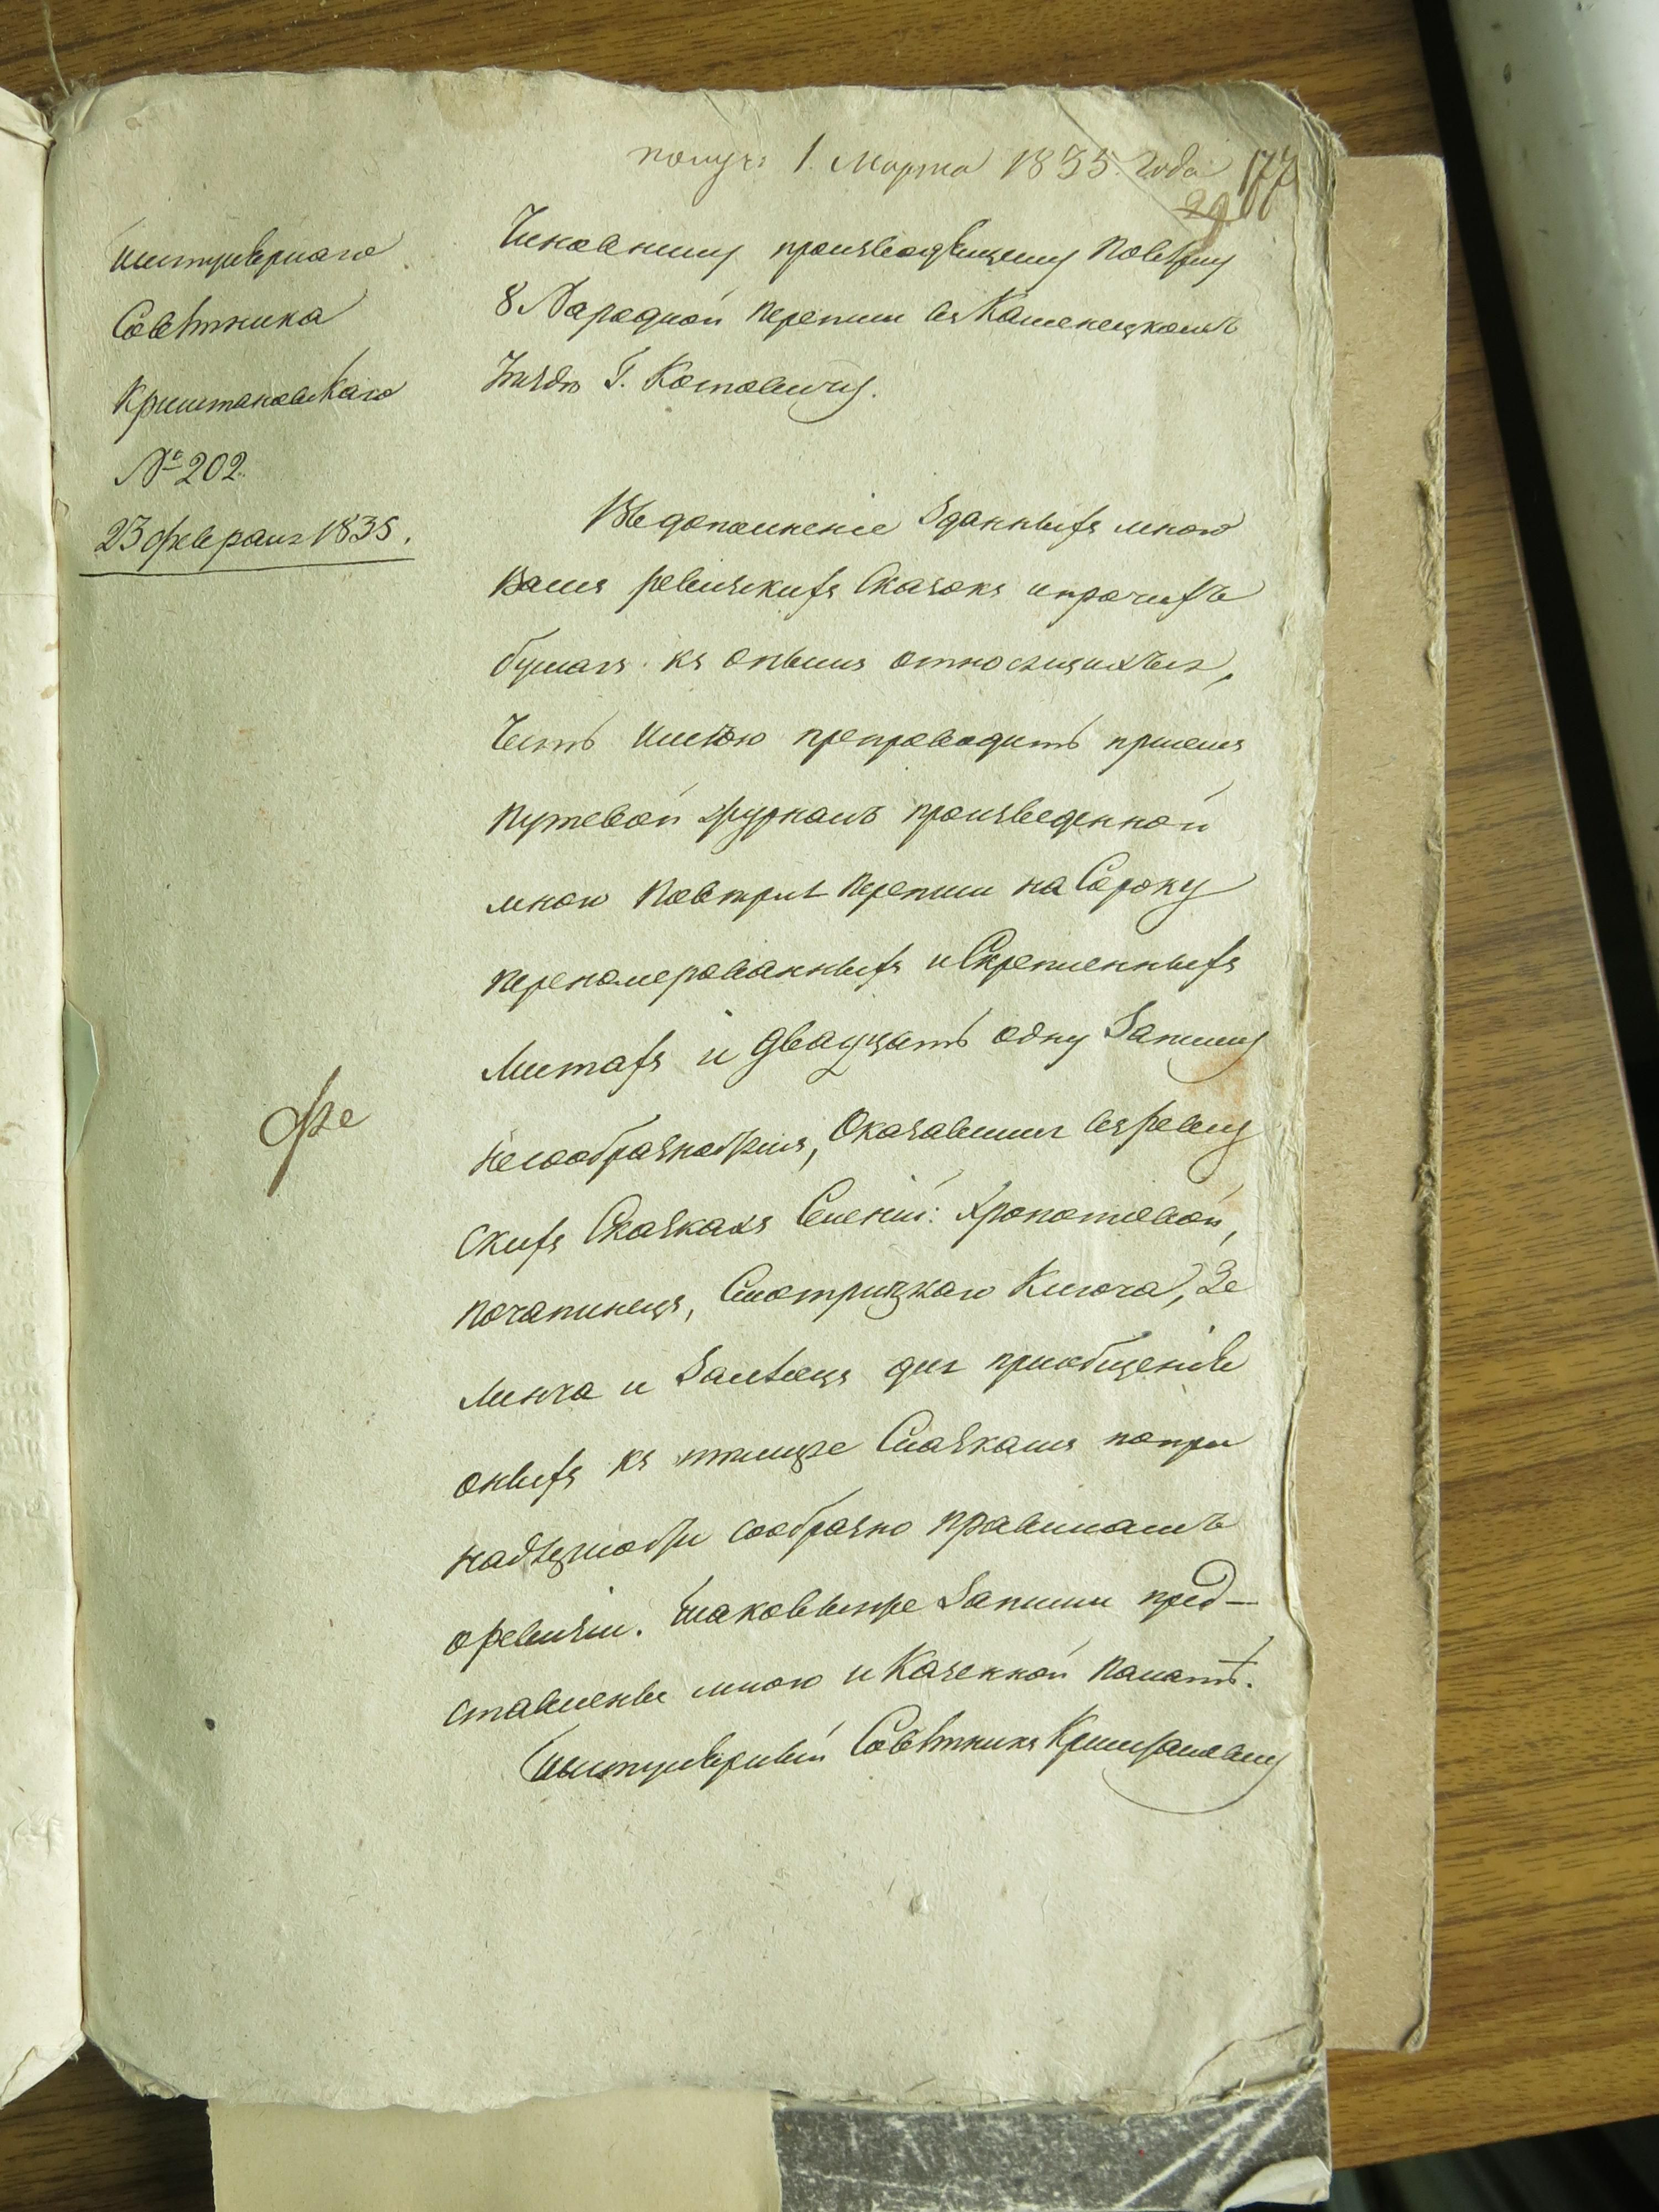 получ: 1. Марта 1835. года 177
29
титулярнаго
Советника
Криштановскаго
№ 202.
23 февраля 1835.
Чиновнику производящему поверку
8 Народной переписи въ Каменецкомъ
Уезде Г. Котовичу.
Въ дополнение зданныхъ мною
Вамъ ревизкихъ сказокъ и прочихъ
бумагъ къ онымъ относящихъся,
честь имею препроводить при семъ
путевой журналъ произведенной
мною поверки переписи на Сороку
перенумерованныхъ и скрепленныхъ
листахъ и двадцать одну записку
несообразностямъ, оказавшимся въ ревиз
скихъ сказкахъ селений: Хропотовой,
Почапинецъ, Смотрицкаго Ключа, Зе
линча и для приобщения
оныхъ къ темже сказкамъ попри
надлежности сообразно правиламъ
о ревизии. Таковыяже записки пред-
ставлены мною и Казенной палате.
Титулярный Советникъ Криштановский